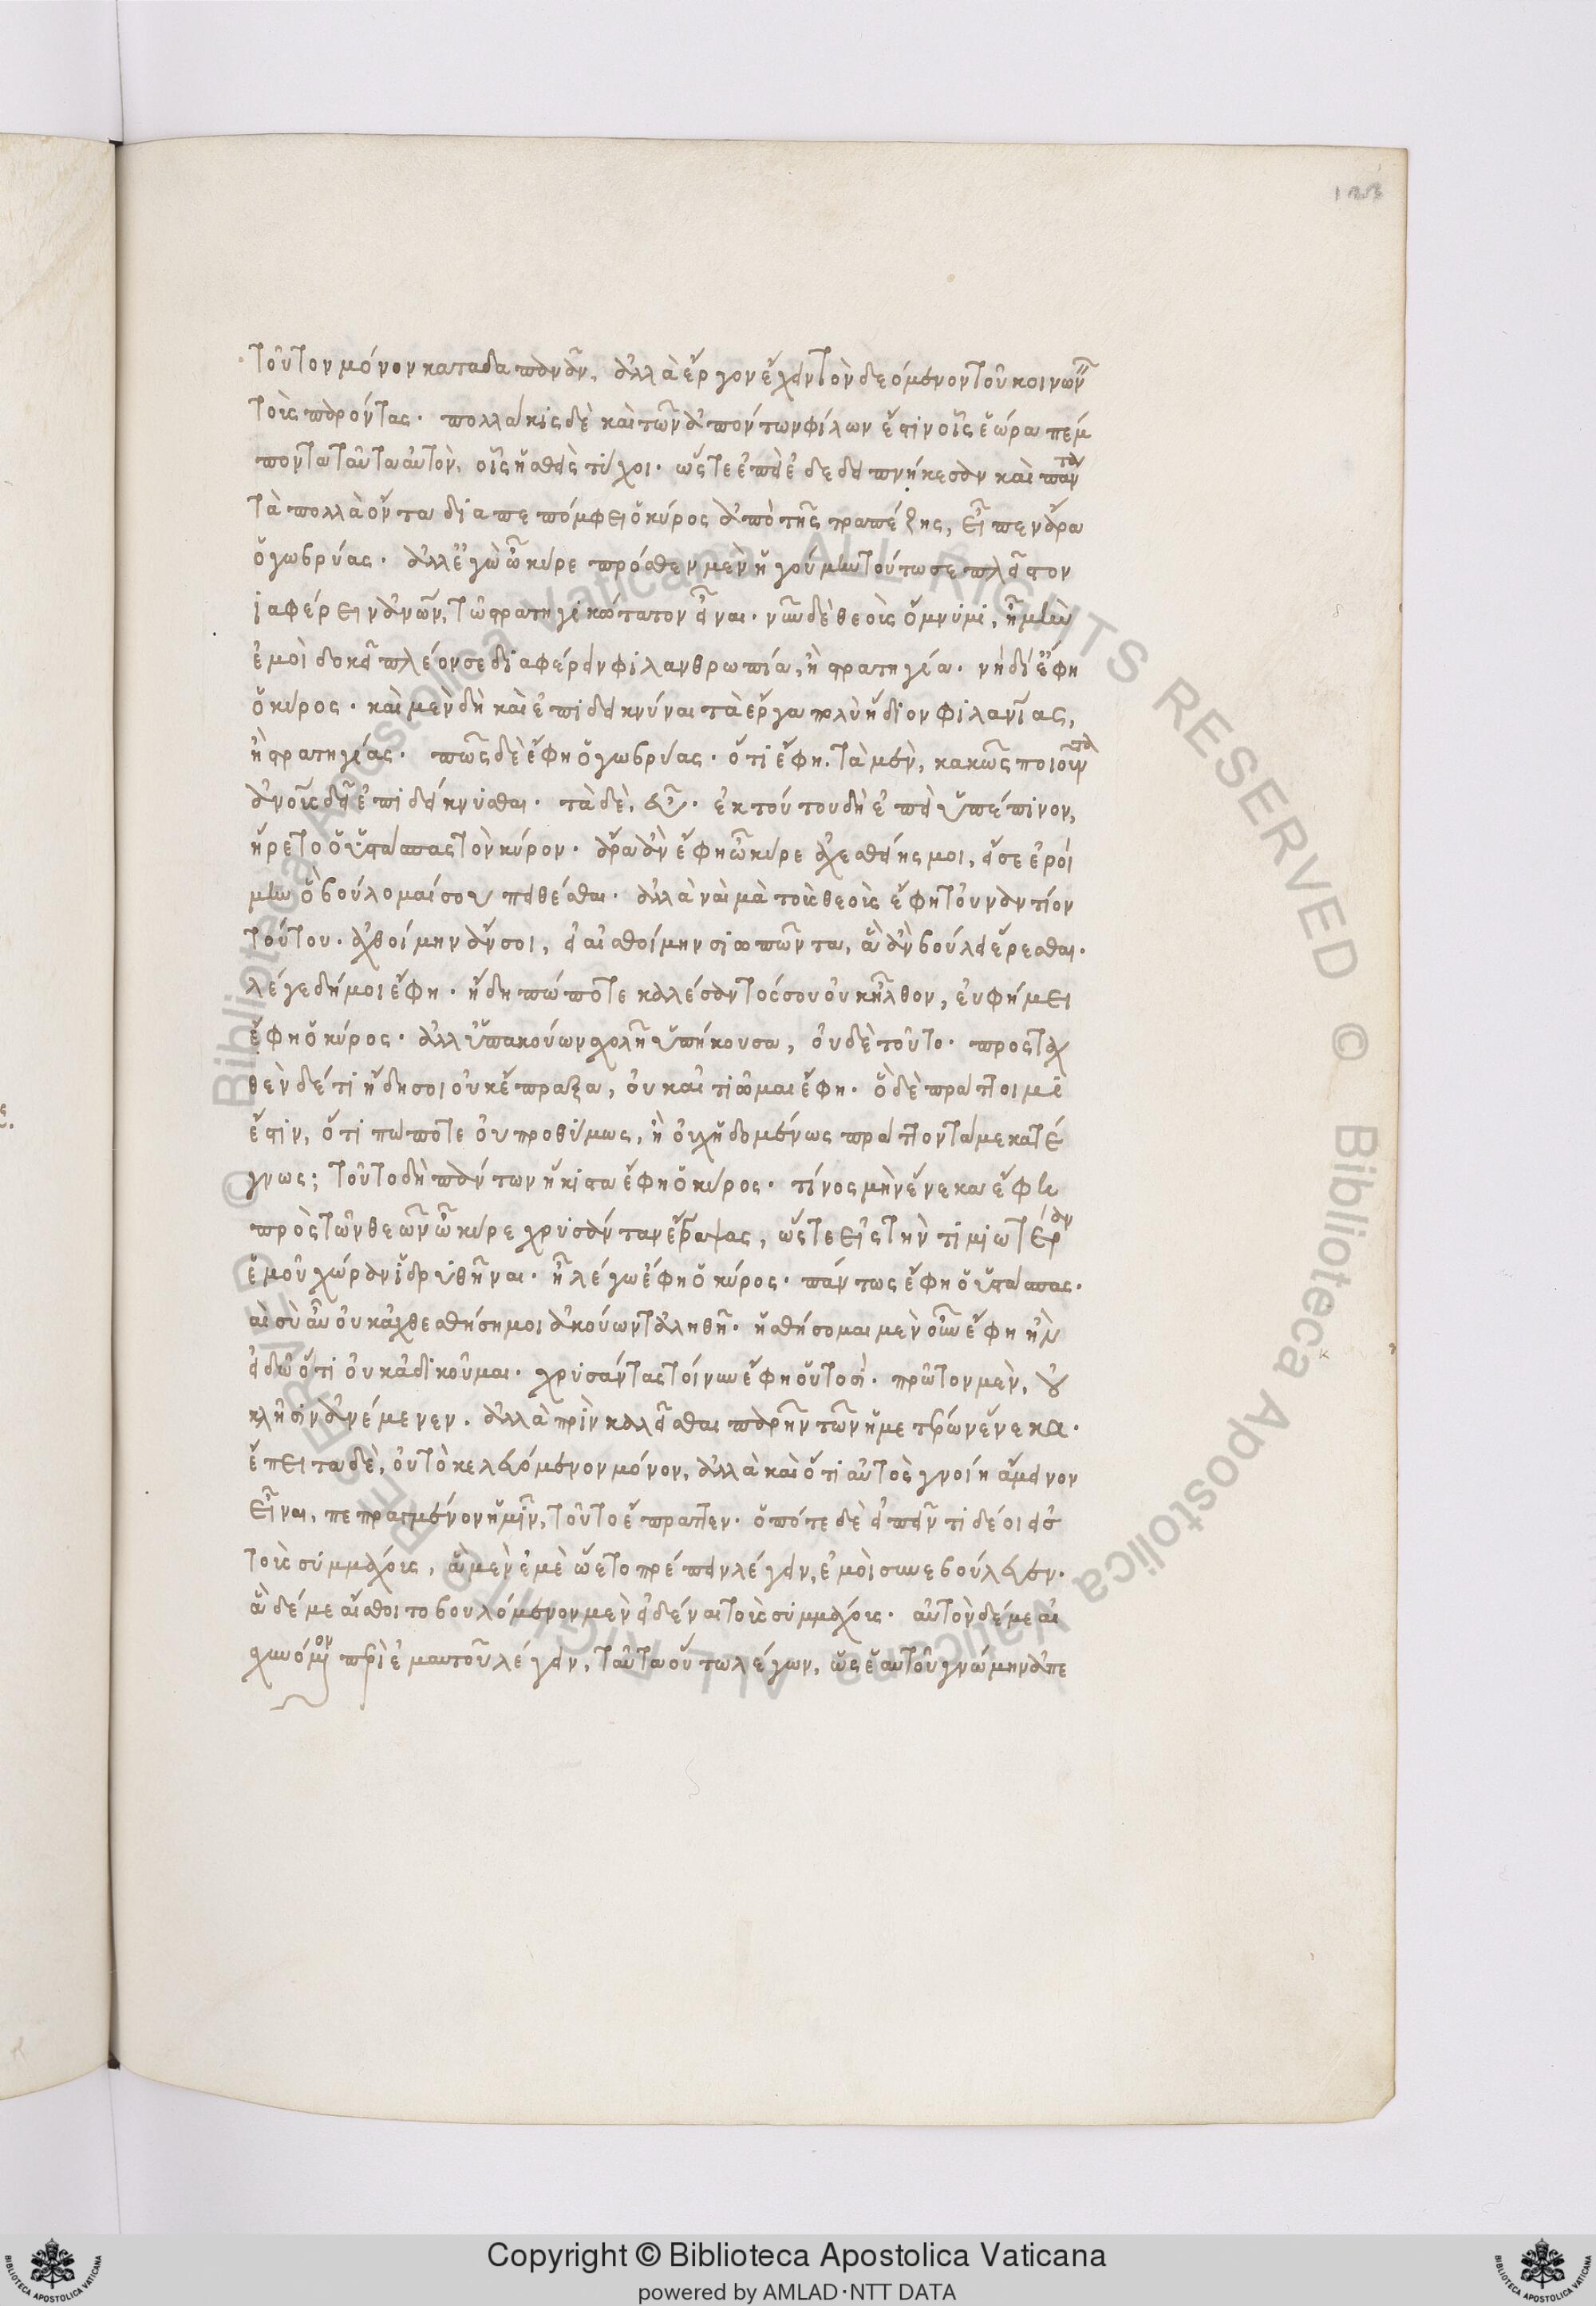 133
τοῦτον μόνον καταδαπανᾶν, ἀλλὰ ἔργον ἔχειν τὸν δεόμενον τοῦ κοινων
τοὺς παρόντας· πολλάκις δὲ καὶ τῶν ἀπόντων φίλων ἔστιν οἷς ἑώρα πέμ
ποντα ταῦτα αὐτὸν, οἷς ἡσθεὶς τύχοι· ὥστε ἐπεὶ ἐδεδειπνήκεσαν καὶ πάντα
τὰ πολλὰ ὄντα διαπεπόμφει ὁ κύρος ἀπὸ τῆς τραπέζης, εἶπεν ἄρα
ὁ γωβρύας· ἀλλ' ἐγὼ ὦ κῦρε πρόσθεν μὲν ἡγούμην τούτω σε πλεῖστον
ιαφέρειν ἀνων, τῶ στρατηγικώτατον εἶναι· νῦν δὲ θεοὺς ὄμνυμι, ἦ μὴν
ἐμοὶ δοκεῖ πλέον σε διαφέρειν φιλανθρωπία, ἢ στρατηγία· νὴ δί' ἔφη
ὁ κύρος· καὶ μὲν δὴ καὶ ἐπιδεικνύναι τὰ ἔργα πολὺ ἥδιον φιλανίας,
ἢ στρατηγίας· πῶς δὲ ἔφη ὁ γωβρύας· ὅτι ἔφη. τὰ μὲν, κακῶς ποιοῦντα
ἀνους δεῖ ἐπιδείκνυσθαι· τὰ δὲ, εὖ· ἐκ τούτου δὴ ἐπεὶ ὑπέπινον,
ἤρετο ὁ ὑστάσπας τὸν κύρον· ἆρα ἂν ἔφη ὦ κῦρε ἀχθεσθείης μοι, εἴ σε ἐροί
μην ὃ βούλομαί σου πυθέσθαι· ἀλλὰ ναὶ μὰ τοὺς θεοὺς ἔφη τοὐναντίον
τούτου· ἀχθοίμην ἄν σοι, εἰ αἰσθοίμην σιωπῶντα, ἃ ἂν βούλει ἔρεσθαι·
λέγε δή μοι ἔφη· ἤδη πώποτε καλέσαντός σου οὐκ ἦλθον, εὐφήμει
ἔφη ὁ κύρος· ἀλλ' ὑπακούων σχολῆ ὑπήκουσα, οὐδὲ τοῦτο· προσταχ
θὲν δέ τι ἤδη σοι οὐκ ἔπραξα, οὐκ αἰτιῶμαι ἔφη· ὃ δὲ πράττοιμι
ἔστιν, ὅτι πώποτε οὐ προθύμως, ἢ οὐχ ἡδομένως πράττοντά με κατέ
γνως; τοῦτο δὴ πάντων ἥκιστα ἔφη ὁ κύρος· τίνος μὴν ἕνεκα ἔφη
πρὸς τῶν θεῶν ὦ κῦρε χρυσάνταν ἔγραψας, ὥστε εἰς τὴν τιμιωτέραν
ἐμοῦ χώραν ἱδρυθῆναι· ἦ λέγω ἔφη ὁ κύρος· πάντως ἔφη ὁ ὑστάσπας·
αὶ σὺ αὖ οὐκ ἀχθεσθήση μοι ἀκούων τἀληθῆ· ἡσθήσομαι μὲν οὖν ἔφη ἢν
εἰδῶ ὅτι οὐκ ἀδικοῦμαι· χρυσάντας τοίνυν ἔφη οὑτοσὶ· πρῶτον μὲν, οὐ
κλῆσιν ἀνέμενεν. ἀλλὰ πρὶν καλεῖσθαι παρῆν τῶν ἡμετέρων ἕνεκα·
ἔπειτα δὲ, οὐ τὸ κελευόμενον μόνον, ἀλλὰ καὶ ὅτι αὐτὸς γνοίη ἄμεινον
εἶναι, πεπραγμένον ἡμῖν, τοῦτο ἔπραττεν· ὁπότε δὲ εἰπεῖν τι δέοι εἰς
τοὺς συμμάχους, ἃ μὲν ἐμὲ ᾤετο πρέπειν λέγειν, ἐμοὶ συνεβούλευεν·
ἃ δέ με αἴσθοιτο βουλόμενον μὲν εἰδέναι τοὺς συμμάχους· αὐτὸν δέ με αἰ
σχυνόμενον περὶ ἐμαυτοῦ λέγειν, ταῦτα οὕτω λέγων, ὡς ἑαυτοῦ γνώμην ἀπε
© Biblioteca Apostolica Vaticana ALL RIGHTS RESERVED
Copyright © Biblioteca Apostolica Vaticana
powered by AMLAD·NTT DATA